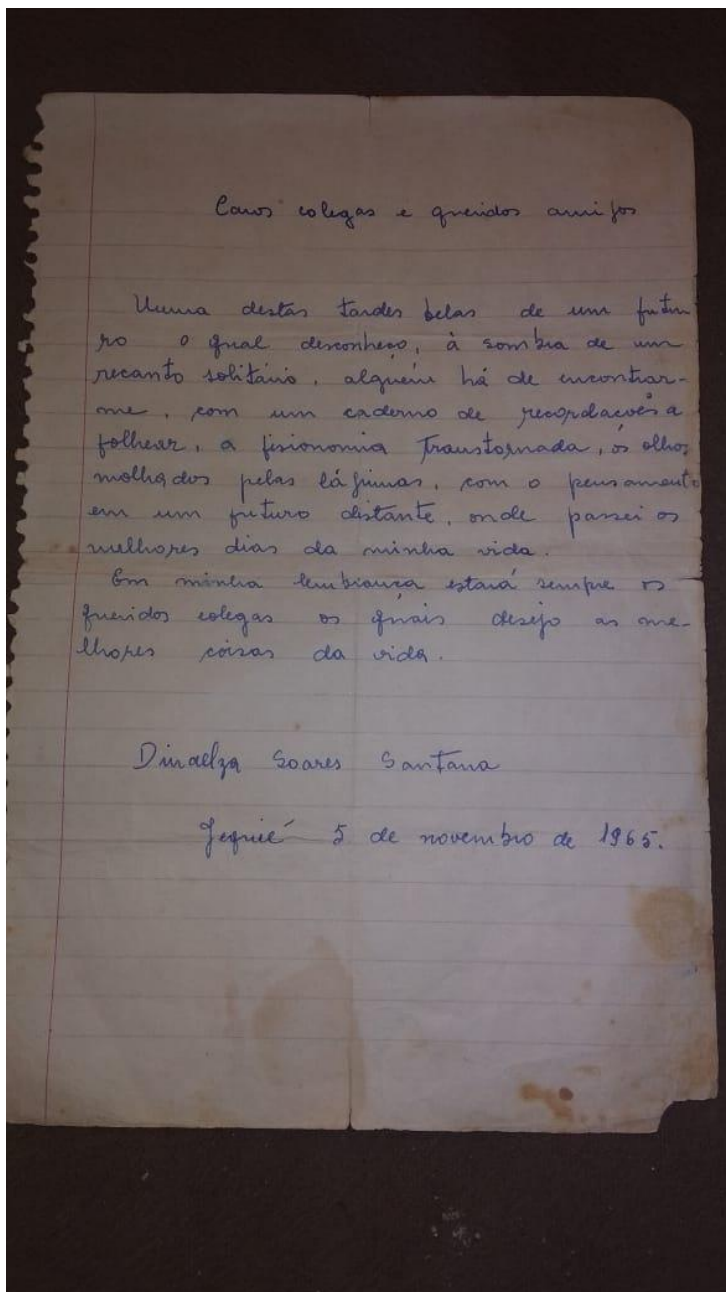 Caros colegas e queridos amigos
Numa destas tardes belas de um futu
ro o qual desconheço, à sombra de um
recanto solitário, alguém há de encontrar-
me, com um caderno de recordações a
folhear, a fisionomia transtornada, os olhos
molhados pelas lágrimas, com o pensamento
em um futuro distante, onde passei os
melhores dias da minha vida.
Em minha lembrança estará sempre os
queridos colegas os quais desejo as me-
lhores coisas da vida.
Dinaelza Soares Santana
Jequié 5 de novembro de 1965.